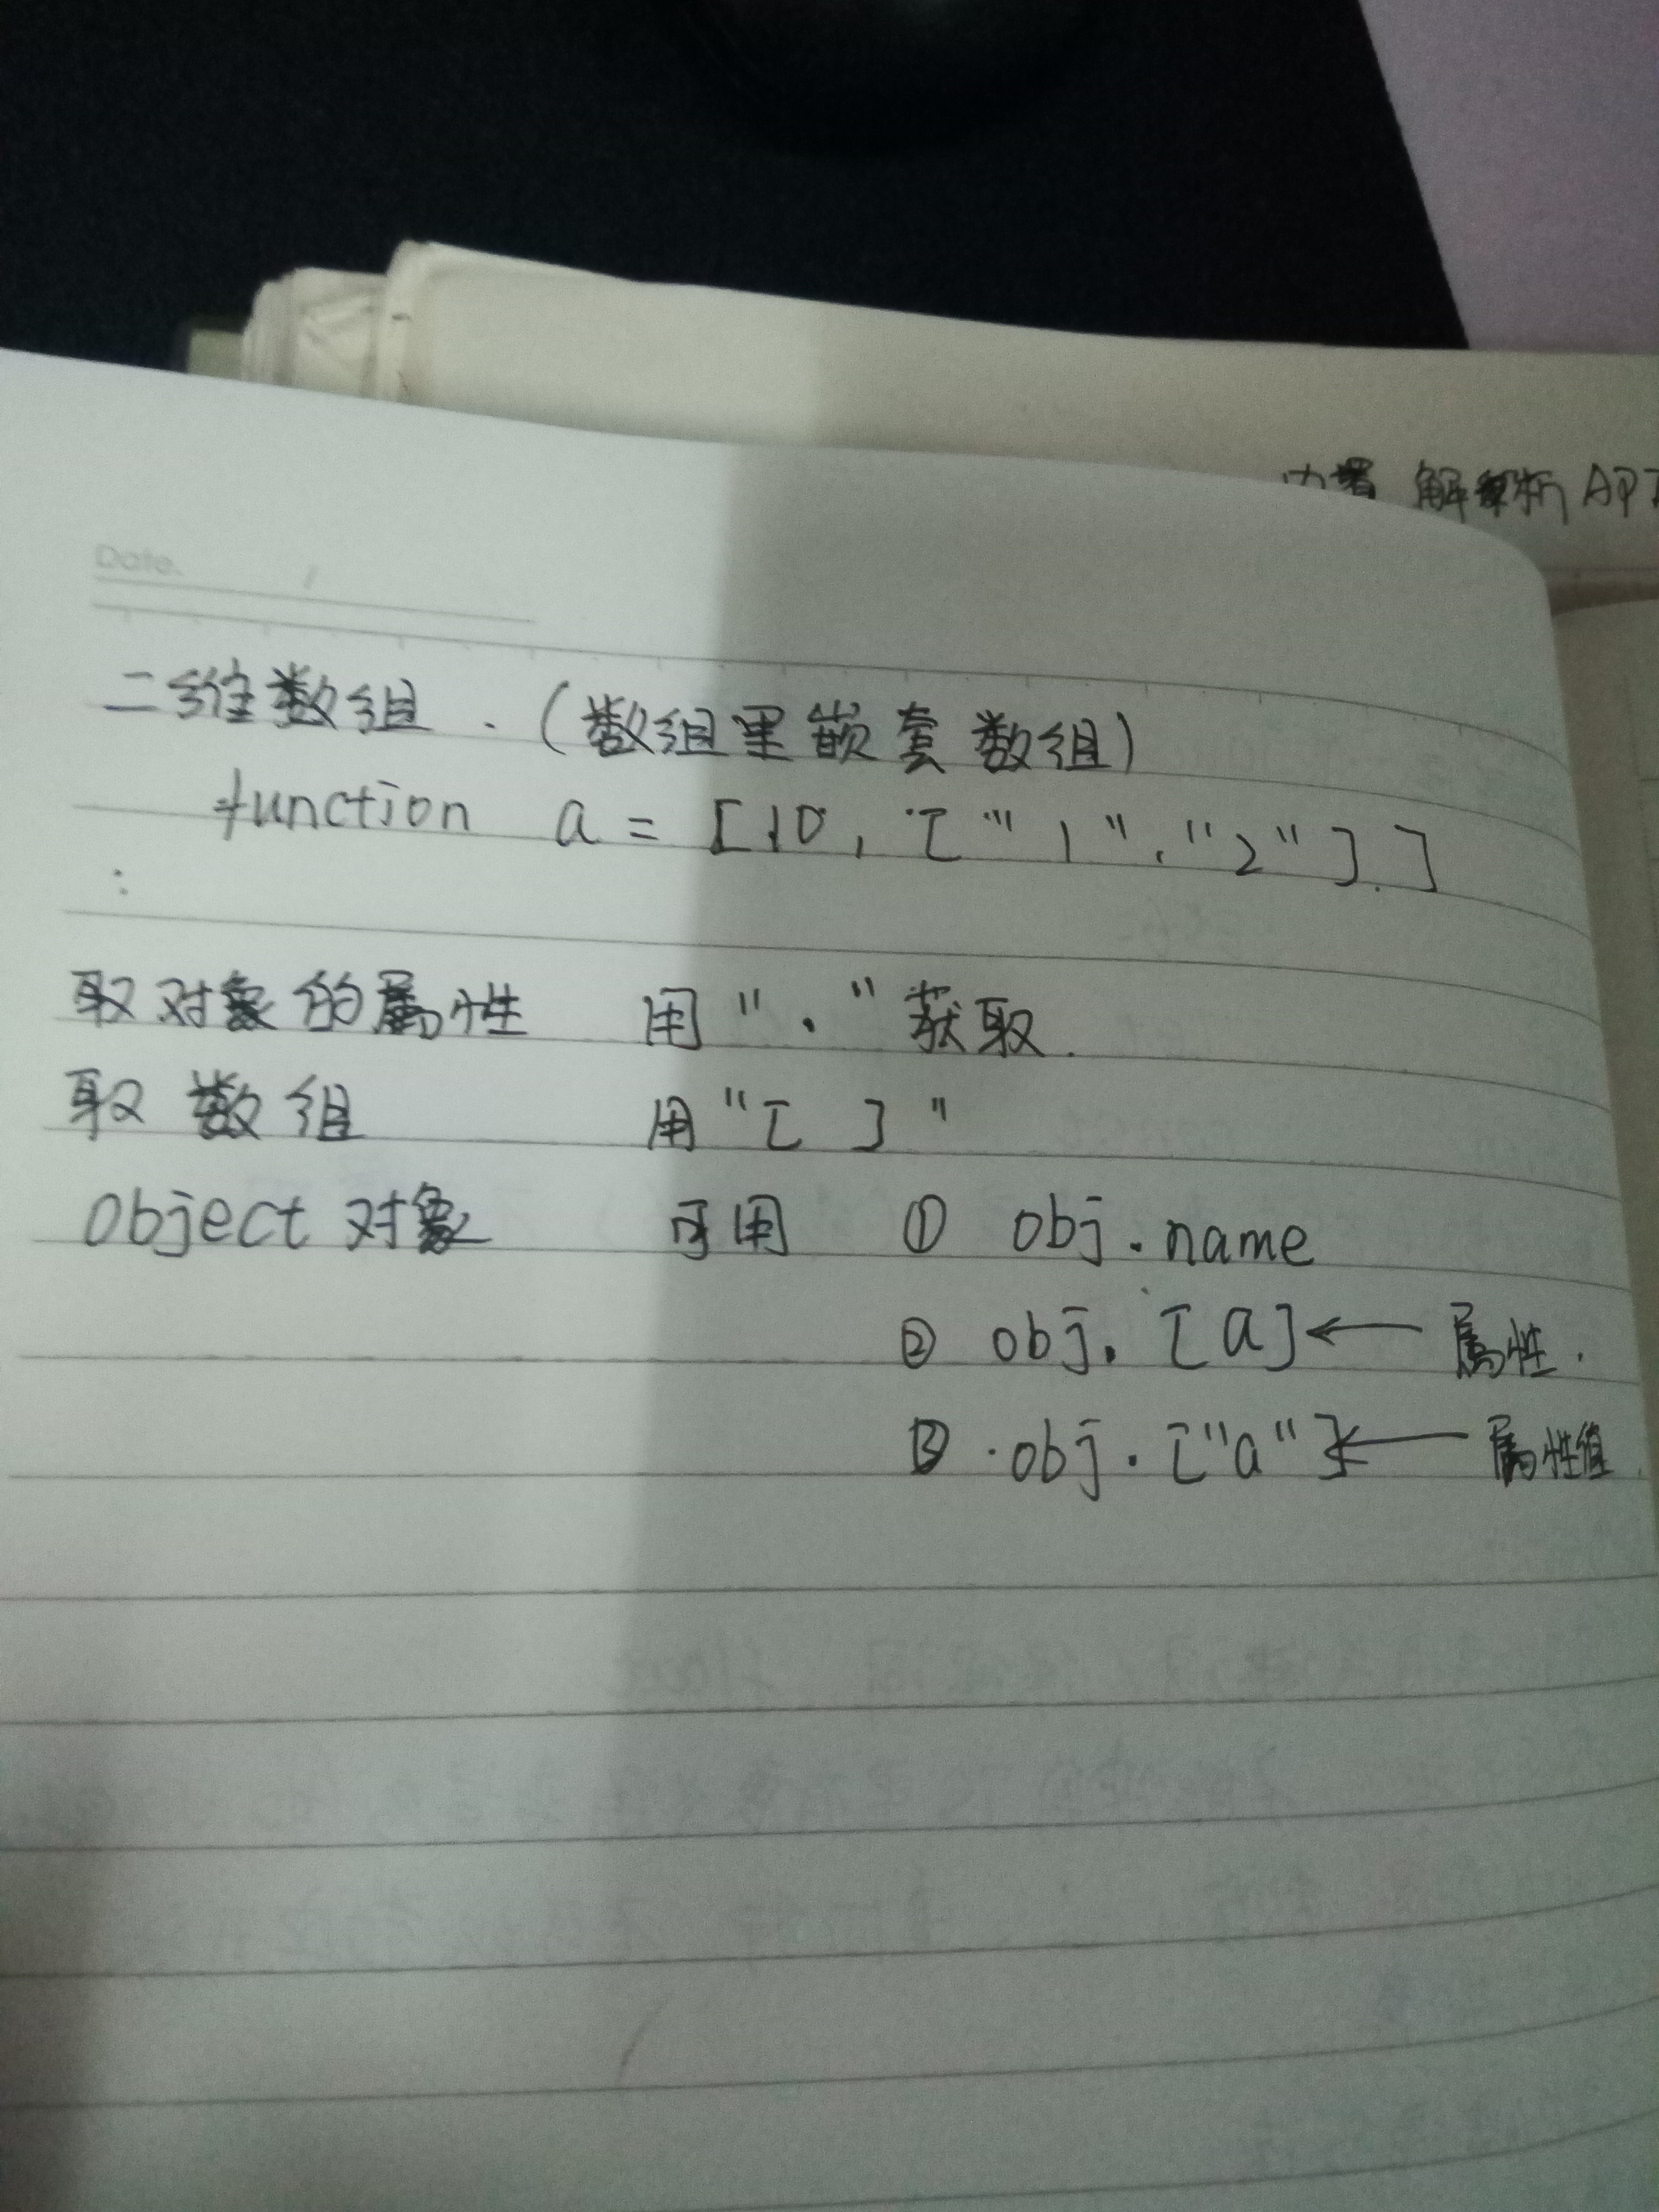 内置 解析 API
Date. /
二维数组.(数组里嵌套数组)
function a = [10, ["1", "2"].]
:
取对象的属性 用"."获取.
取数组 用"[ ]"
object对象 可用 ① obj.name
② obj.[a] ← 属性.
③ ·obj.["a"] ← 属性值.